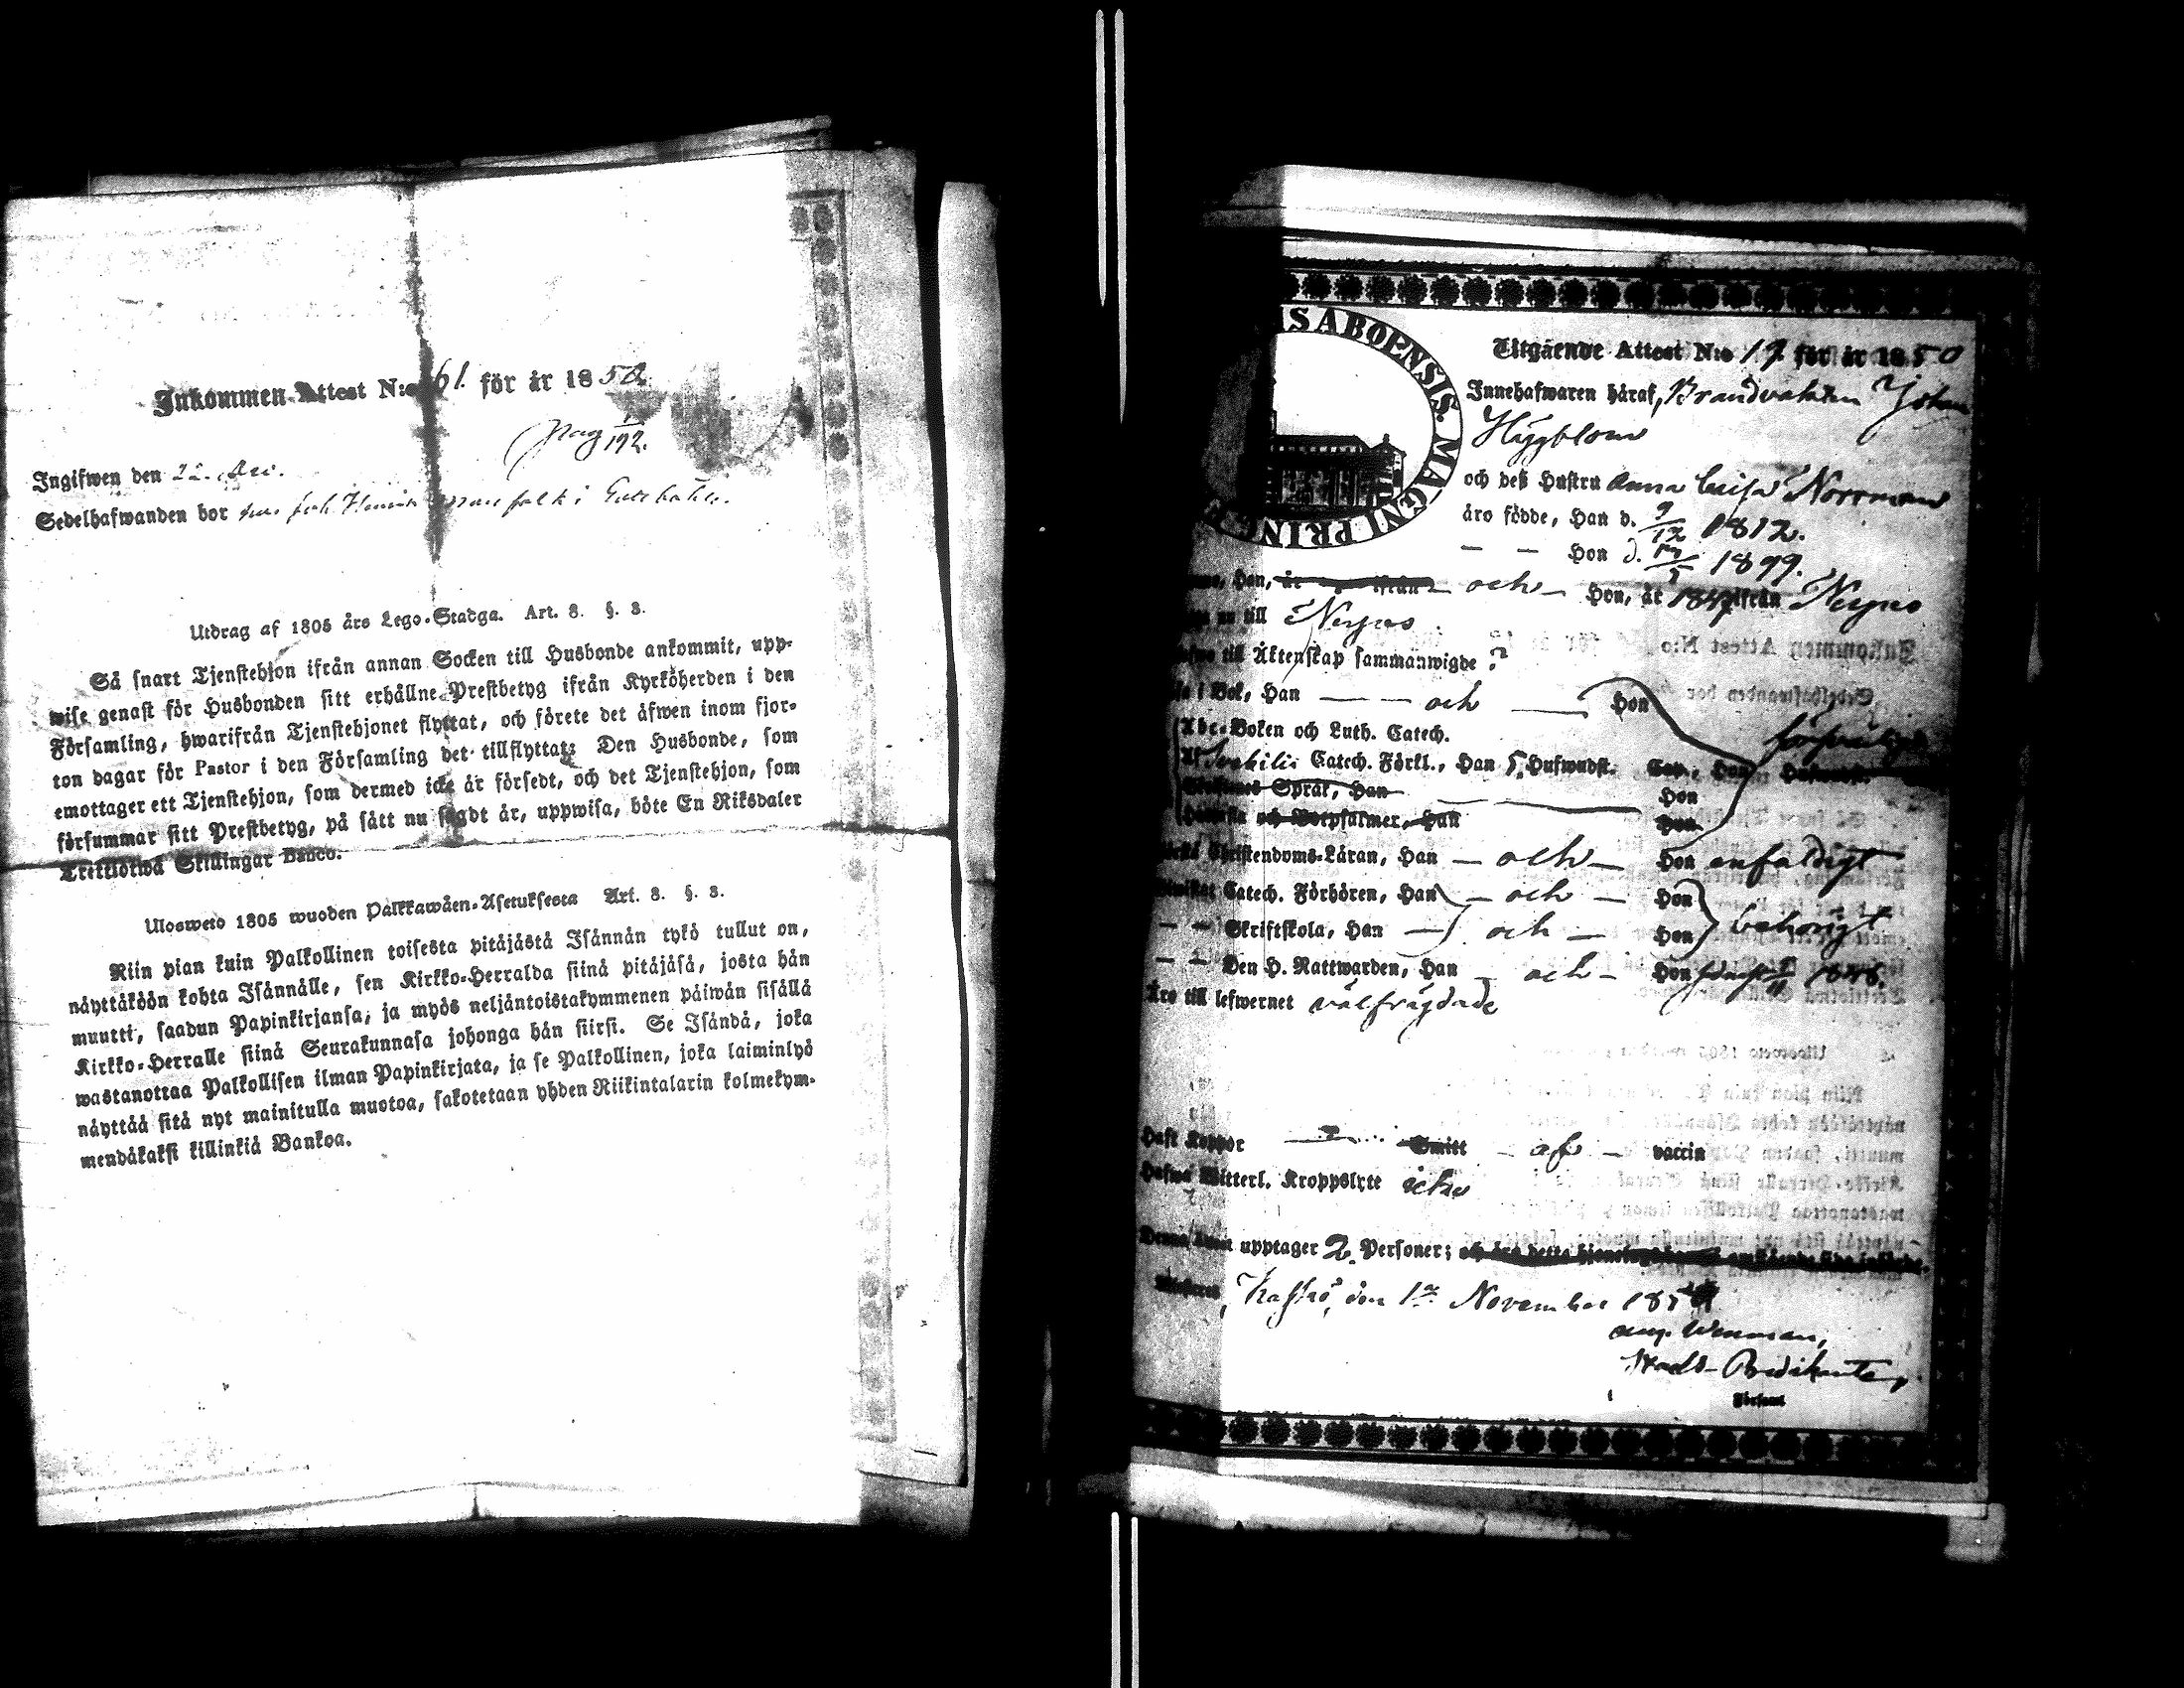 Inkommen Attest N:o 61. för år 1850
pag 1/192.
Ingifwen den 22. Dec.
Sedelhafwanden bor hos Joh. Henrik
Utdrag af 1805 års Lego-Stadga. Art. 3. §. 3.
Så snart Tjenstehjon ifrån annan Socken till Husbonde ankommit, upp-
wise genast för Husbonden sitt erhållne Prestbetyg ifrån Kyrköherden i den
Församling, hwarifrån Tjenstehjonet flyttat, och förete det äfwen inom fjor-
ton dagar för Pastor i den Församling det tillflyttat: Den Husbonde, som
emottager ett Tjenstehjon, som dermed icke är försedt, och det Tjenstehjon, som
försummar sitt Prestbetyg, på sätt nu sagdt är, uppwisa, böte En Riksdaler
Trettiotwå Skillingar Banco.
Ulosweto 1805 wuoden Palkkawäen-Asetuksesta Art. 3. §. 3.
Niin pian kuin Palkollinen toisesta pitäjästä Isännän tykö tullut on,
näyttäköön kohta Isännälle, sen Kirkko-Herralda siinä pitäjäsä, josta hän
muutti, saadun Papinkirjansa, ja myös neljäntoistakymmenen päiwän sisällä
Kirkko-Herralle siinä Seurakunnasa johonga hän siirsi. Se Isändä, joka
wastanottaa Palkollisen ilman Papinkirjata, ja se Palkollinen, joka laiminlyö
näyttää sitä nyt mainitulla muotoa, sakotetaan yhden Riikintalarin kolmekym-
mendäkaksi killinkiä Bankoa.
SABOENSIS. MAGNI PRINC
Utgående Attest N:o 19. för år 1850
Innehafwaren häraf, Brandvakten Johan
Häggblom
och deß Hustru Anna Caisa Norrman
äro födde, Han d. 9/12 1812.
— — Hon d. 1899.
Han, är ifrån och — Hon, är 1847 ifrån Nerpes
nu till Nerpes.
till Äktenskap sammanwigde ?
i Bok, Han — — och — Hon
Abc-Boken och Luth. Catech. försvarligt
Af Svebilii Catech. Förkl., Han 5. Hufwudst. Cap., Hon Hufwudst.
Språk, Han — — Hon
och Botpsalmer, Han Hon
Christendoms-Läran, Han — och — Hon enfaldigt
Catech. Förhören, Han — och — Hon
— — Skriftskola, Han — och — Hon behörigt
— — Den H. Nattwarden, Han — och — Hon 1848.
Äro till lefwernet välfrägdade
Haft Koppor Smitt — af — vaccin
Hafwa Witterl. Kroppslyte icke
Denna upptager 2. Personer;
Kaskö, den 1ste November 185
Aug. Wenman,
Stads-Predikant
Församl.